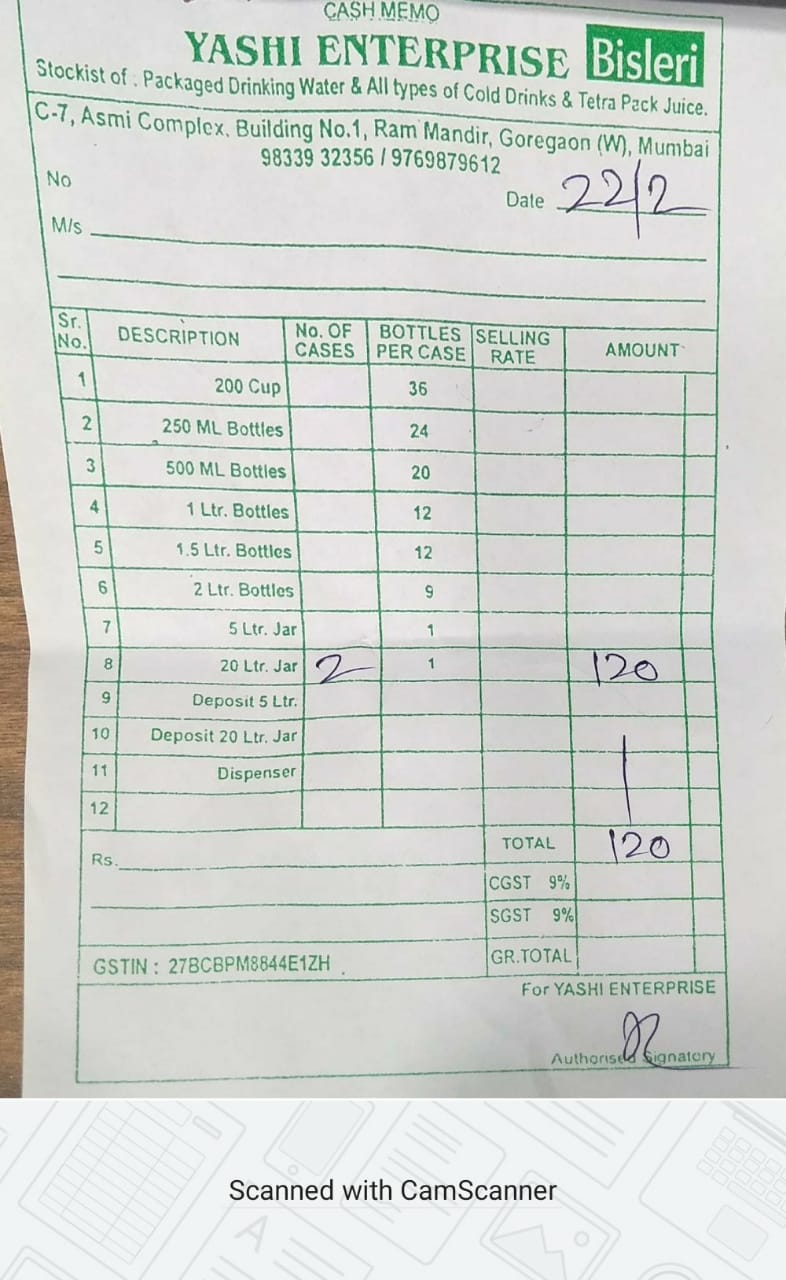 CASH MEMO
YASHI ENTERPRISE Bisleri
Stockist of : Packaged Drinking Water & All types of Cold Drinks & Tetra Pack Juice.
C-7, Asmi Complex, Building No.1, Ram Mandir, Goregaon (W), Mumbai
98339 32356 / 9769879612
No
Date 22/2
M/s
Sr. No. DESCRIPTION No. OF CASES BOTTLES PER CASE SELLING RATE AMOUNT
1 200 Cup 36
2 250 ML Bottles 24
3 500 ML Bottles 20
4 1 Ltr. Bottles 12
5 1.5 Ltr. Bottles 12
6 2 Ltr. Bottles 9
7 5 Ltr. Jar 1
8 20 Ltr. Jar 2 1 120
9 Deposit 5 Ltr.
10 Deposit 20 Ltr. Jar
11 Dispenser
12
Rs. TOTAL 120
CGST 9%
SGST 9%
GSTIN : 27BCBPM8844E1ZH GR.TOTAL
For YASHI ENTERPRISE
Authorised Signatory
Scanned with CamScanner